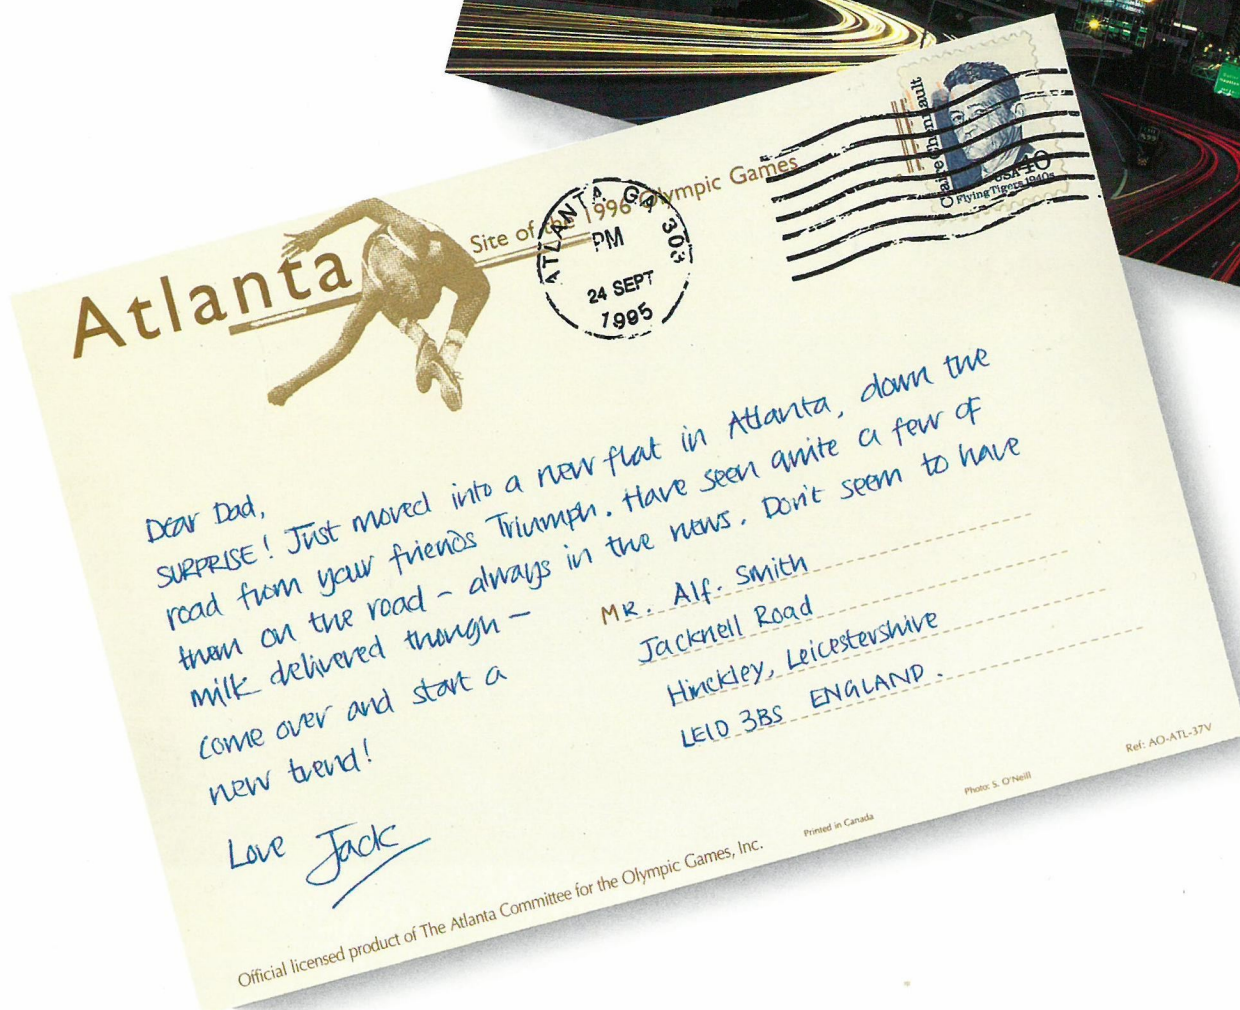 Atlanta
Site of the 1996 Olympic Games
ATLANTA GA 303
PM
24 SEPT
1995
Claire Chennault
USA 40
Flying Tigers 1940s
Dear Dad,
SURPRISE! Just moved into a new flat in Atlanta, down the
road from your friends Triumph. Have seen quite a few of
them on the road - always in the news. Don't seem to have
milk delivered though -
come over and start a
new trend!
Love Jack
MR. Alf. Smith
Jacknell Road
Hinckley, Leicestershire
LE10 3BS ENGLAND.
Official licensed product of The Atlanta Committee for the Olympic Games, Inc.
Printed in Canada
Photo: S. O'Neill
Ref: AO-ATL-37V